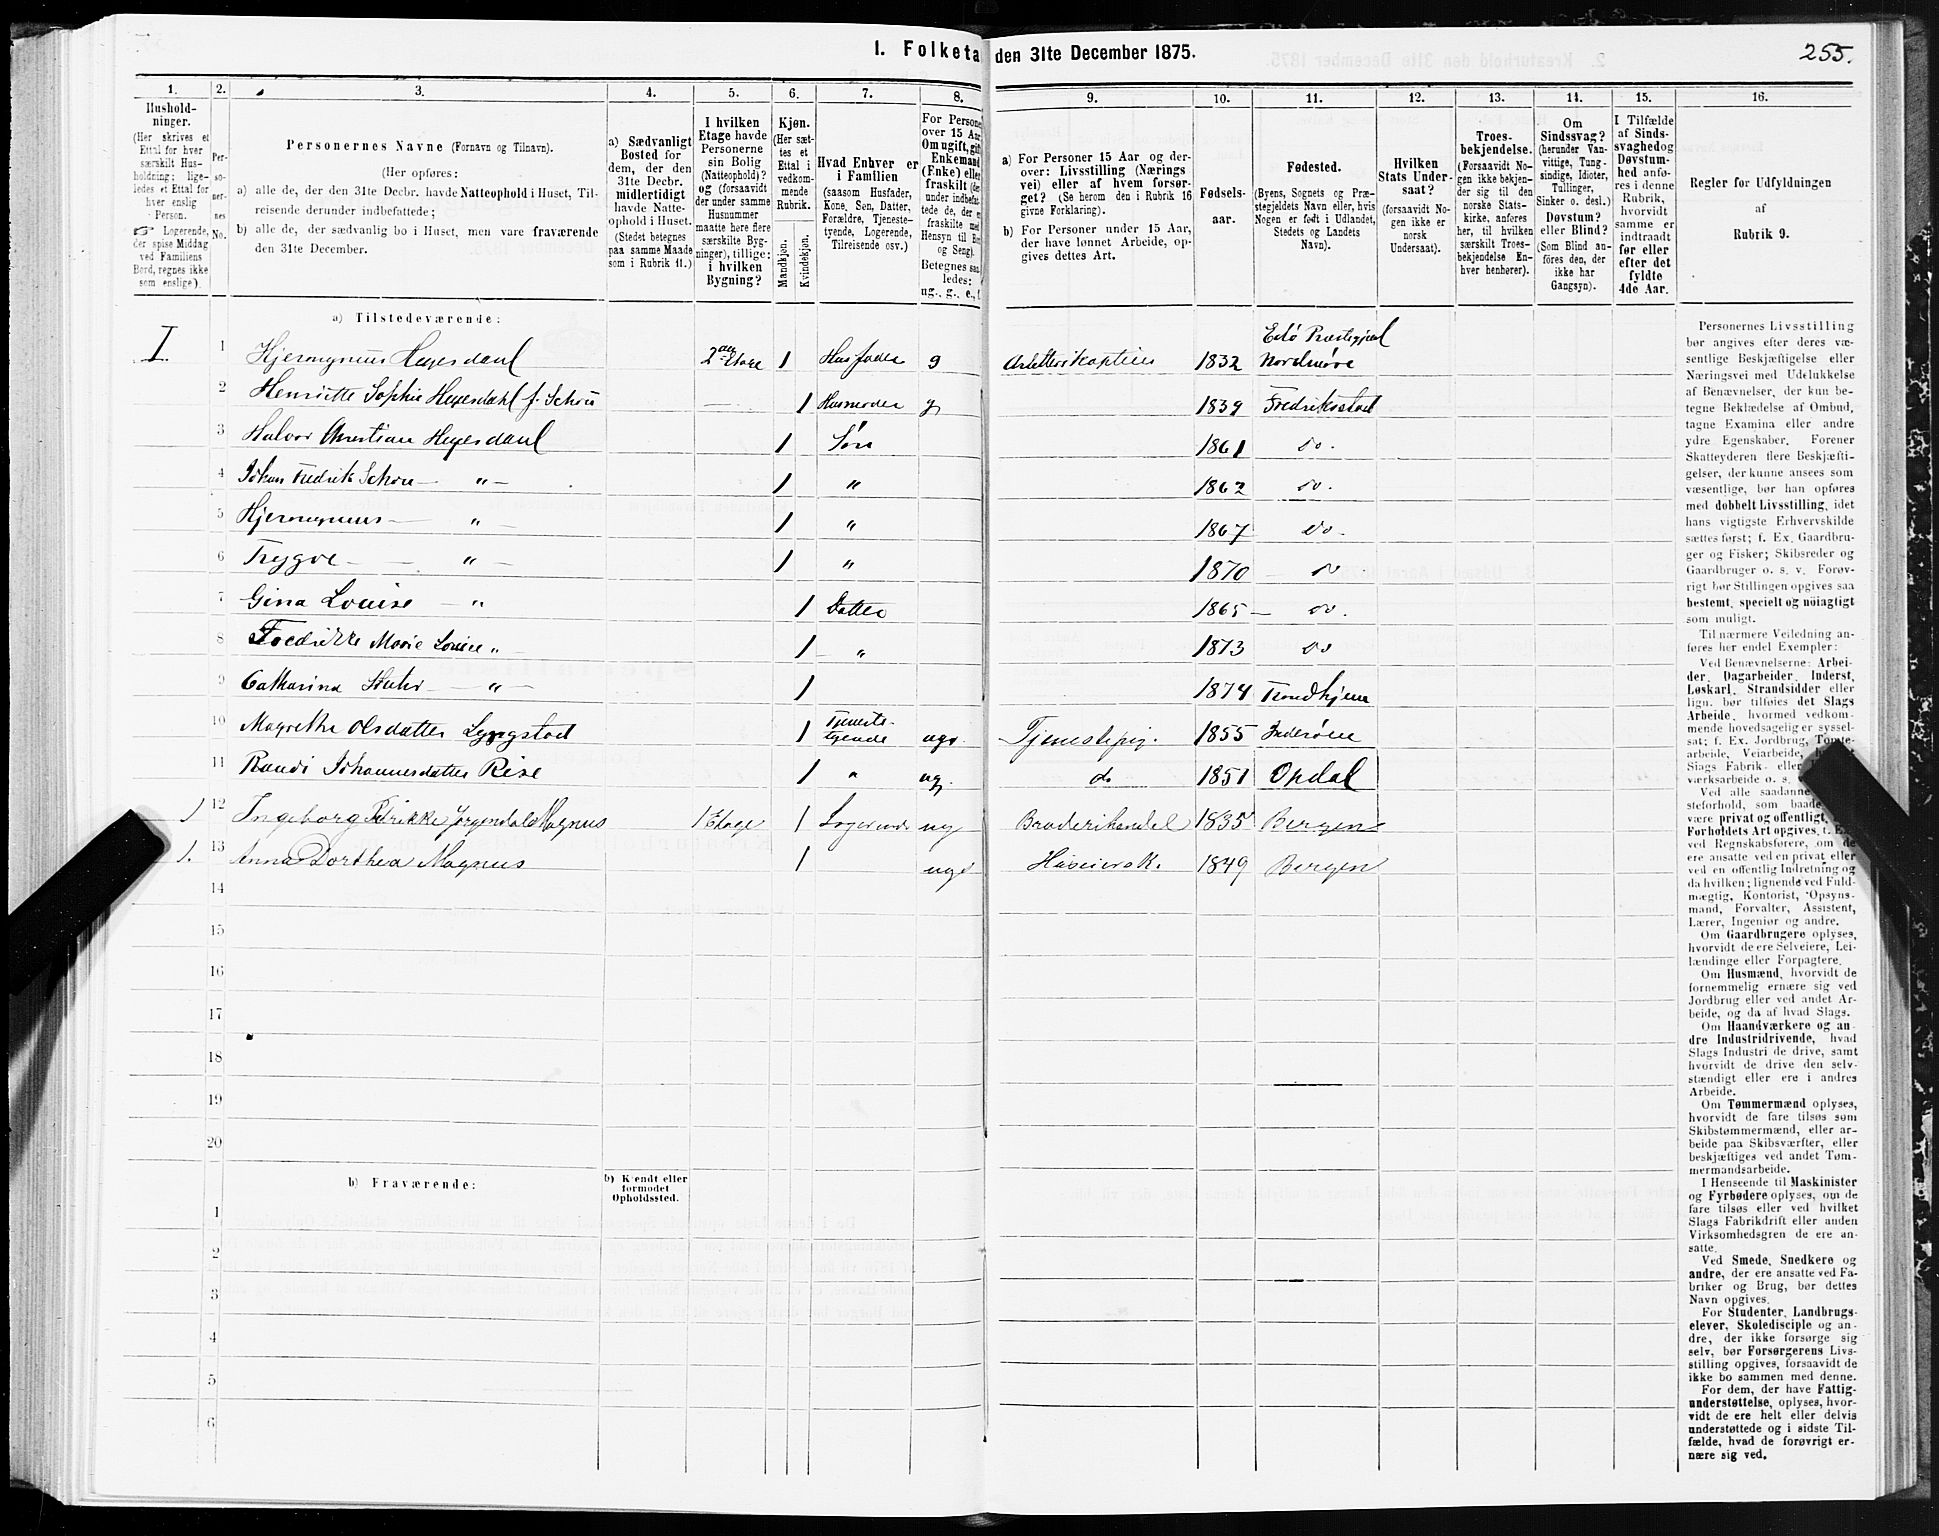 I. Folketa den 31te December 1875.
255.
1. 2. 3. 4. 5. 6. 7. 8. 9. 10. 11. 12. 13. 14. 15. 16.
Hushold-
ninger.
(Her skrives et
Ettal for hver
særskilt Hus-
holdning; lige-
ledes et Ettal for
hver enslig
Person.
☞ Logerende,
der spise Middag
ved Familiens
Bord, regnes ikke
som enslige).
Per-
so-
ner-
nes
No.
Personernes Navne (Fornavn og Tilnavn).
(Her opføres:
a) alle de, der den 31te Decbr. havde Natteophold i Huset, Til-
reisende derunder indbefattede;
b) alle de, der sædvanlig bo i Huset, men vare fraværende
den 31te December.
a) Sædvanligt
Bosted for
dem, der den
31te Decbr.
midlertidigt
havde Natte-
ophold i Huset.
(Stedet betegnes
paa samme Maade
som i Rubrik 11.)
I hvilken
Etage havde
Personerne
sin Bolig
(Natteophold)?
og (forsaavidt
der under samme
Husnummer
maatte høre flere
særskilte Byg-
ninger), tillige:
i hvilken
Bygning?
Kjøn.
(Her sæt-
tes et
Ettal i
vedkom-
mende
Rubrik.
Mandkjøn.
Kvindekjøn.
Hvad Enhver er
i Familien
(saasom Husfader,
Kone, Søn, Datter,
Forældre, Tjeneste-
tyende, Logerende,
Tilreisende osv.)
For Persone
over 15 Aar
Om ugift, gift
Enkemand
(Enke) eller
fraskilt (der
under indbefat-
tede de, der
fraskilte med
Hensyn til Bo
og Seng).
Betegnes saa
ledes:
ug., g., e., f
a) For Personer 15 Aar og der-
over: Livsstilling (Nærings
vei) eller af hvem forsør-
get? (Se herom den i Rubrik 16
givne Forklaring).
b) For Personer under 15 Aar,
der have lønnet Arbeide, op-
gives dettes Art.
Fødsels-
aar.
Fødested.
(Byens, Sognets og Præ-
stegjeldets Navn eller, hvis
Nogen er født i Udlandet,
Stedets og Landets
Navn).
Hvilken
Stats Under-
saat?
(forsaavidt No-
gen ikke er
norsk
Undersaat).
Troes-
bekjendelse.
(Forsaavidt No-
gen ikke bekjen-
der sig til den
norske Stats-
kirke, anføres
her, til hvilken
særskilt Troes-
bekjendelse En-
hver henhører).
Om
Sindssvag?
(herunder Van-
vittige, Tung-
sindige, Idioter,
Tullinger,
Sinker o. desl.)
Døvstum?
eller Blind?
(Som Blind an-
føres den, der
ikke har
Gangsyn).
I Tilfælde
af Sinds-
svaghed og
Døvstum-
hed anfø-
res i denne
Rubrik,
hvorvidt
samme er
indtraadt
før eller
efter det
fyldte
4de Aar.
Regler for Udfyldningen
af
Rubrik 9.
a) Tilstedeværende:
I 1 Hjeronymus Heyerdahl 2den Etage 1 Husfader g Artillerikaptein 1832 Edø Præstegjeld Nordmøre
2 Henriette Sophie Heyerdahl f. Schou 1 Husmoder g 1839 Fredriksstad
3 Halvor Christian Heyerdahl 1 Søn 1861 do.
4 Johan Fredrik Schou — " — 1 " 1862 do.
5 Hjeronymus — " — 1 " 1867 do.
6 Trygve — " — 1 " 1870 — do
7 Gina Louise — " 1 Datter 1865 — do.
8 Fredrikke Marie Louise " 1 — " 1873 do
9 Catharina — " — 1 1874 Trondhjem
10 Magrethe Olsdatter Lyngstad 1 Tjeneste- tyende ug. Tjenestepig. 1855 Inderøen
11 Randi Johannesdatter Rise 1 " ug. do 1851 Opdal
1 12 Ingeborg Fredrikke Magnus 1 Etage 1 Logerende ug Broderihandel 1835 Bergen
1. 13 Anna Dorthea Magnus 1 ug. 1849 Bergen
14
15
16
17
18
20
b) Fraværende:
b) Kjendt eller
formodet
Opholdssted.
1
2
3
4
5
6
Personernes Livsstilling
bør angives efter deres væ-
sentlige Beskjæftigelse eller
Næringsvei med Udelukkelse
af Benævnelser, der kun be-
tegne Beklædelse af Ombud,
tagne Examina eller andre
ydre Egenskaber. Forener
Skatteyderen flere Beskjæfti-
gelser, der kunne ansees som
væsentlige, bør han opføres
med dobbelt Livsstilling, idet
hans vigtigste Erhvervskilde
sættes først; f. Ex. Gaardbru-
ger og Fisker; Skibsreder og
Gaardbruger o. s. v. Forøv-
rigt bør Stillingen opgives saa
bestemt, specielt og nöiagtigt
som muligt.
Til nærmere Veiledning an-
føres her endel Exempler:
Ved Benævnelserne: Arbei-
der, Dagarbeider, Inderst,
Løskarl, Strandsidder eller
lign. bør tilføies det Slags
Arbeide, hvormed vedkom-
mende hovedsagelig er syssel-
sat; f. Ex. Jordbrug, Tomte-
arbeide, Veiarbeide,
Slags Fabrik- eller
værksarbeide o. s.
Ved alle saadanne
steforhold, som baade
være privat og offentligt,
Forholdets Art opgives, f. Ex.
ved Regnskabsførere, om de
ere ansatte ved en privat eller
ved en offentlig Indretning og
da hvilken; lignende ved Fuld-
mægtig, Kontorist, Opsyns-
mand, Forvalter, Assistent,
Lærer, Ingeniør og andre.
Om Gaardbrugere oplyses,
hvorvidt de ere Selveiere, Lei-
lændinge eller Forpagtere.
Om Husmænd, hvorvidt de
fornemmelig ernære sig ved
Jordbrug eller ved andet Ar-
beide, og da af hvad Slags.
Om Haandværkere og an-
dre Industridrivende, hvad
Slags Industri de drive, samt
hvorvidt de drive den selv-
stændigt eller ere i andres
Arbeide.
Om Tømmermænd oplyses,
hvorvidt de fare tilsøs som
Skibstømmermænd, eller ar-
beide paa Skibsværfter, eller
beskjæftiges ved andet Tøm-
mermandsarbeide.
I Henseende til Maskinister
og Fyrbødere oplyses, om de
fare tilsøs eller ved hvilket
Slags Fabrikdrift eller anden
Virksomhedsgren de ere an-
satte.
Ved Smede, Snedkere og
andre, der ere ansatte ved Fa-
briker og Brug, bør dettes
Navn opgives.
For Studenter, Landbrugs-
elever, Skoledisciple og an-
dre, der ikke forsørge sig
selv, bør Forsørgerens Livs-
stilling opgives, forsaavidt de
ikke bo sammen med denne.
For dem, der have Fattig-
understøttelse, oplyses, hvor-
vidt de ere helt eller delvis
understøttede og i sidste Til-
fælde, hvad de forøvrigt er-
nære sig ved.